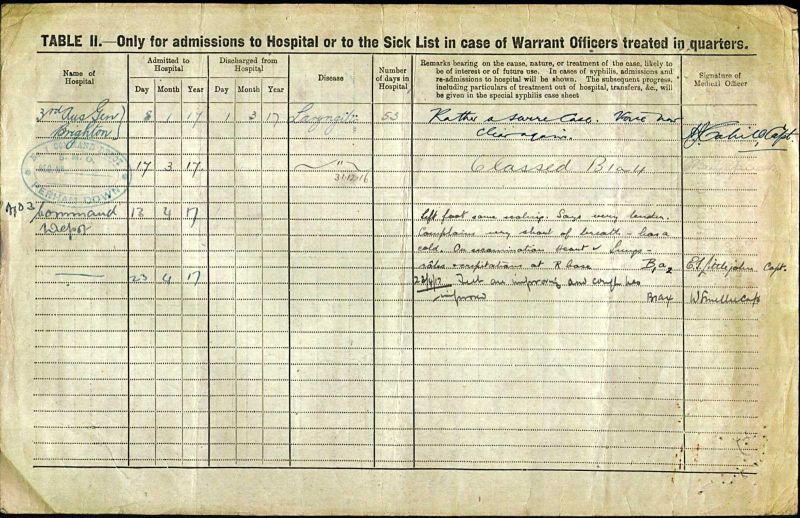 TABLE II.—Only for admissions to Hospital or to the Sick List in case of Warrant Officers treated in quarters.
Name of Hospital
Admitted to Hospital
Day Month Year
Discharged from Hospital
Day Month Year
Disease
Number of days in Hospital
Remarks bearing on the cause, nature, or treatment of the case, likely to
be of interest or of future use. In cases of syphilis, admissions and
re-admissions to hospital will be shown. The subsequent progress,
including particulars of treatment out of hospital, transfers, &c., will
be given in the special syphilis case sheet
Signature of Medical Officer
3rd Aus Gen 1 17 1 3 17 Laryngitis 53 Rather a severe case. Voice now
Brighton clear again. Capt.
COMMAND DEPOT
PERHAM DOWN
17 3 17 Classed B1a4
31.12.16
Command 13 4 17 left foot some scaling. Says very tender.
Depot Complains very short of breath - has a
cold. On examination Heart & lungs -
râles & crepitations at R base B1a2 Littlejohn Capt.
23 4 17 23/4/17 Feet are improving and cough has
improved B1a4 Capt